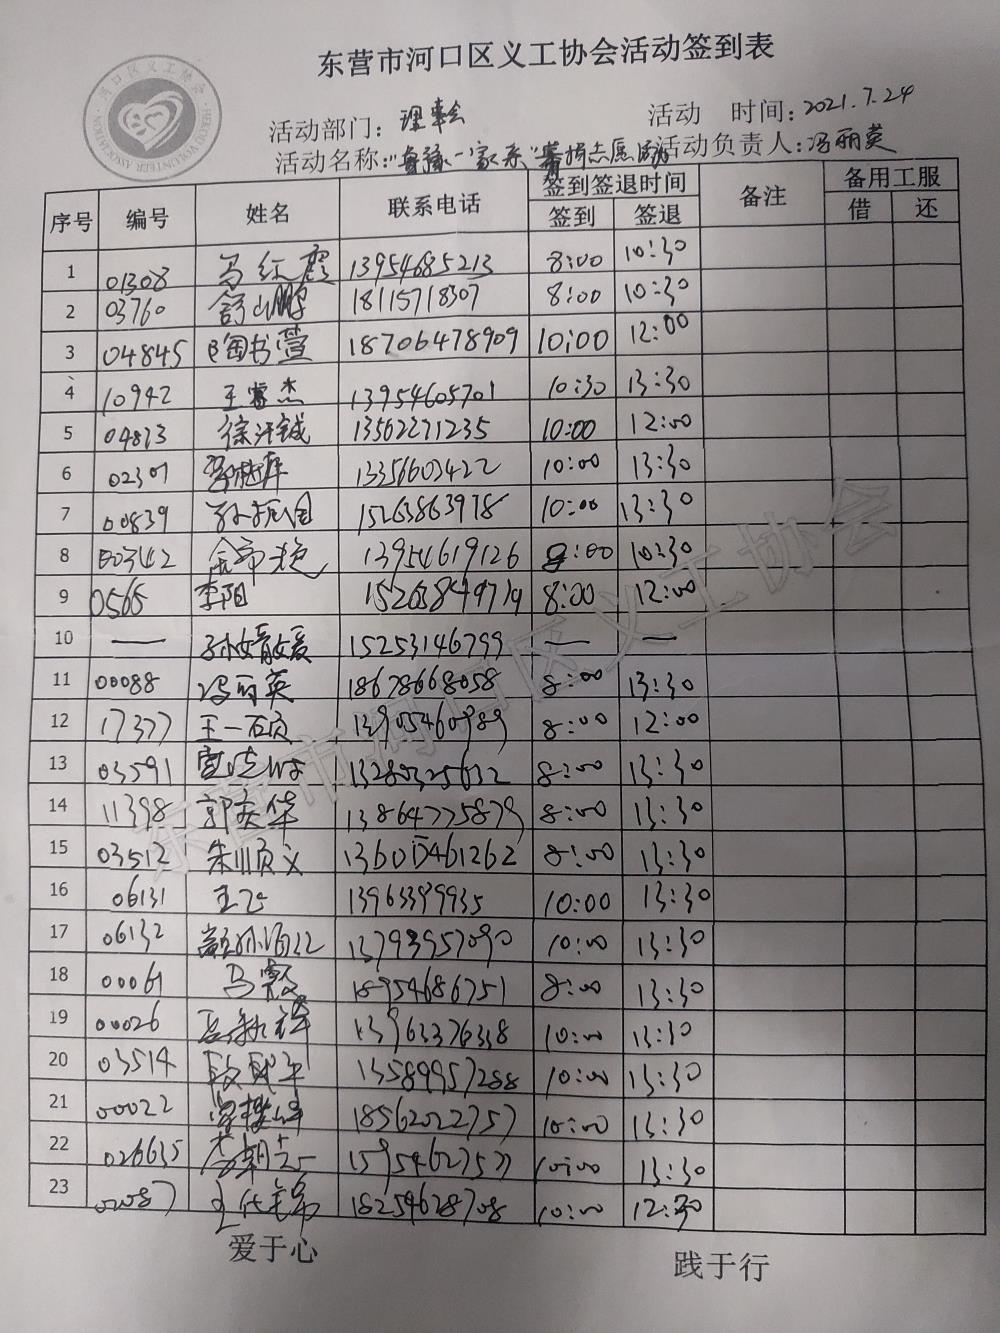 东营市河口区义工协会活动签到表
河口区义工协会
HEKOU VOLUNTEER ASSOCIATION
活动部门: 理事会 活动 时间: 2021.7.24
活动名称: 一家亲 志愿活动 活动负责人: 冯丽英
序号 编号 姓名 联系电话 签到签退时间 备注 备用工服
签到 签退 借 还
1 01308 马红霞 13954685213 8:00 10:30
2 03760 舒小鹏 18115718307 8:00 10:30
3 04845 陶书萱 18706478909 10:00 12:00
4 10942 王睿杰 13954605701 10:30 13:30
5 04813 徐汗铖 13562271235 10:00 12:00
6 02307 13356603422 10:00 13:30
7 00839 15263863978 10:00 13:30
8 003442 13954619126 8:00 10:30
9 0565 李阳 8:00 12:00
10 — 孙婧媛 15253146799 — —
11 00088 冯丽英 18678668058 8:00 13:30
12 17377 王一硕 13905460989 8:00 12:00
13 03591 13280325632 8:00 13:30
14 11398 郭英华 13864775879 8:00 13:30
15 03512 朱顺义 13605461262 8:00 13:30
16 06131 13963399935 10:00 13:30
17 06132 13793957090 10:00 13:30
18 00061 马 18954686751 8:00 13:30
19 00026 13963376338 10:00 13:30
20 03514 段 13589957288 10:00 13:30
21 00022 18562022757 10:00 13:30
22 026635 李朝 15954627577 10:00 13:30
23 02087 王 18254628708 10:00 12:30
东营市河口区义工协会
爱于心 践于行